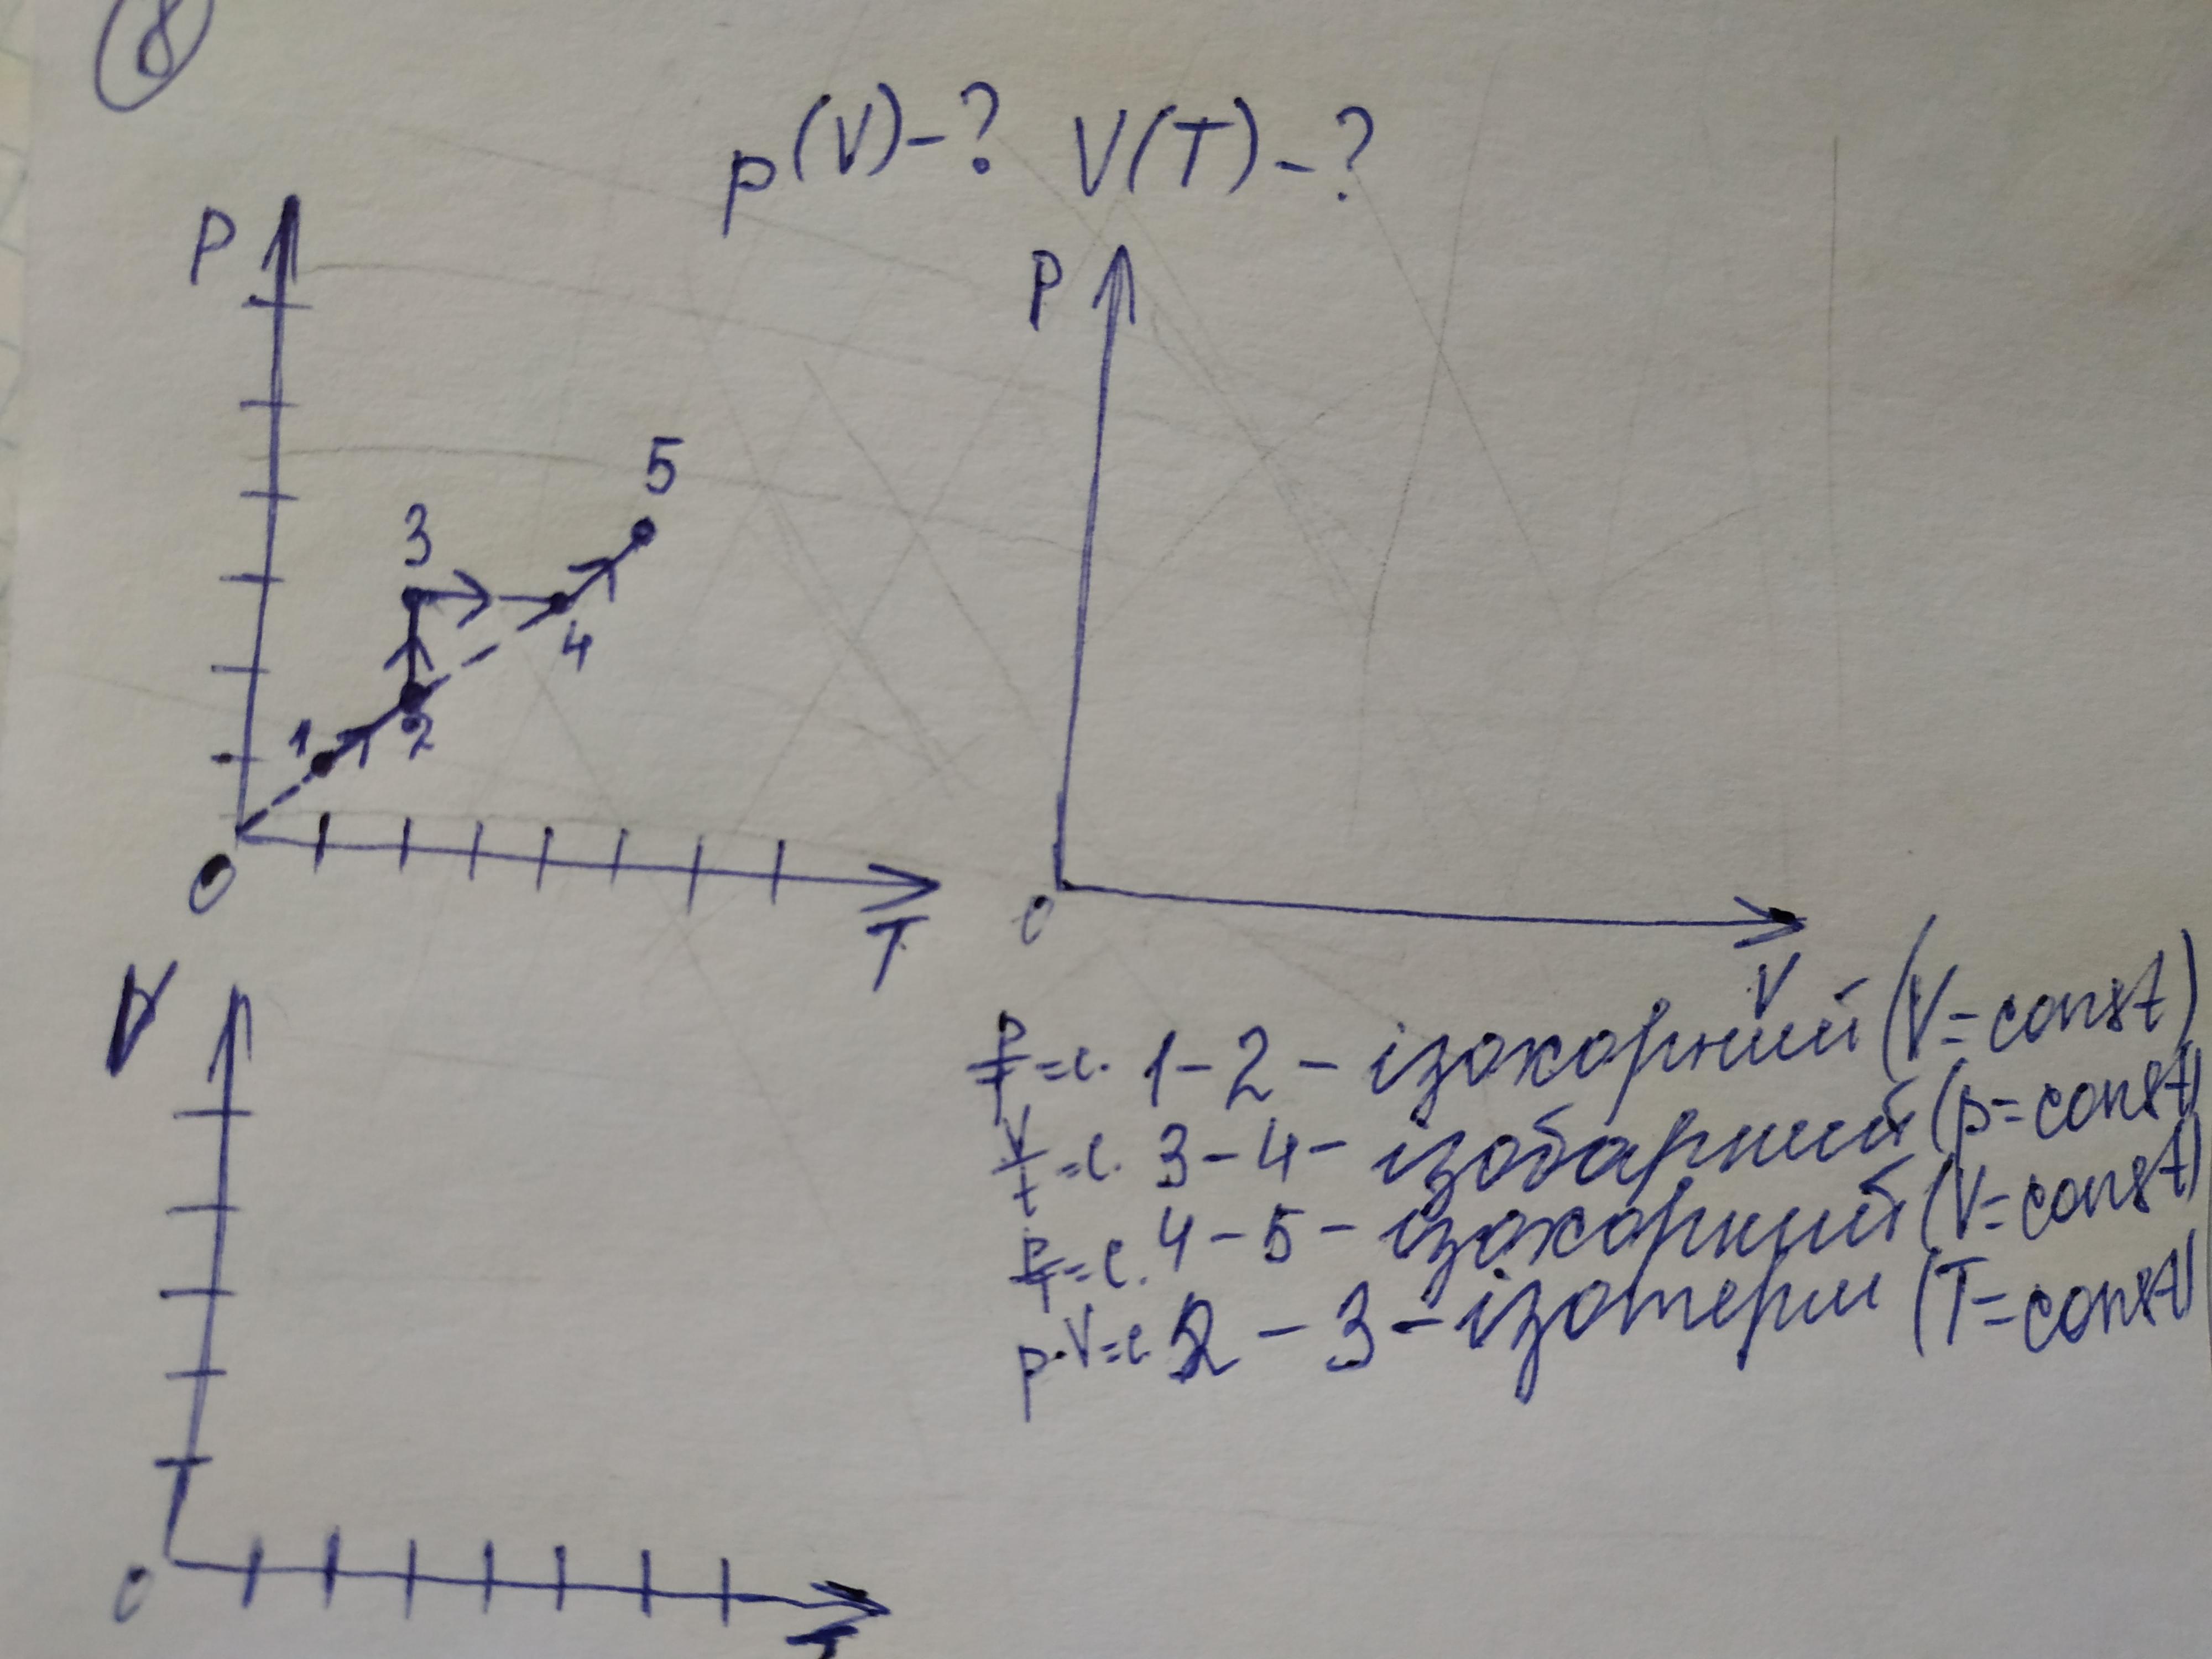 8
p(V)-? V(T)-?
P
5
3
4
1
2
0
T
P
0
V
V
0
T
P/T=c. 1-2-ізохорний (V=const)
V/t=c. 3-4-ізобарний (p=const)
P/T=c. 4-5-ізохорний (V=const)
p·V=c. 2-3-ізотерм (T=const)